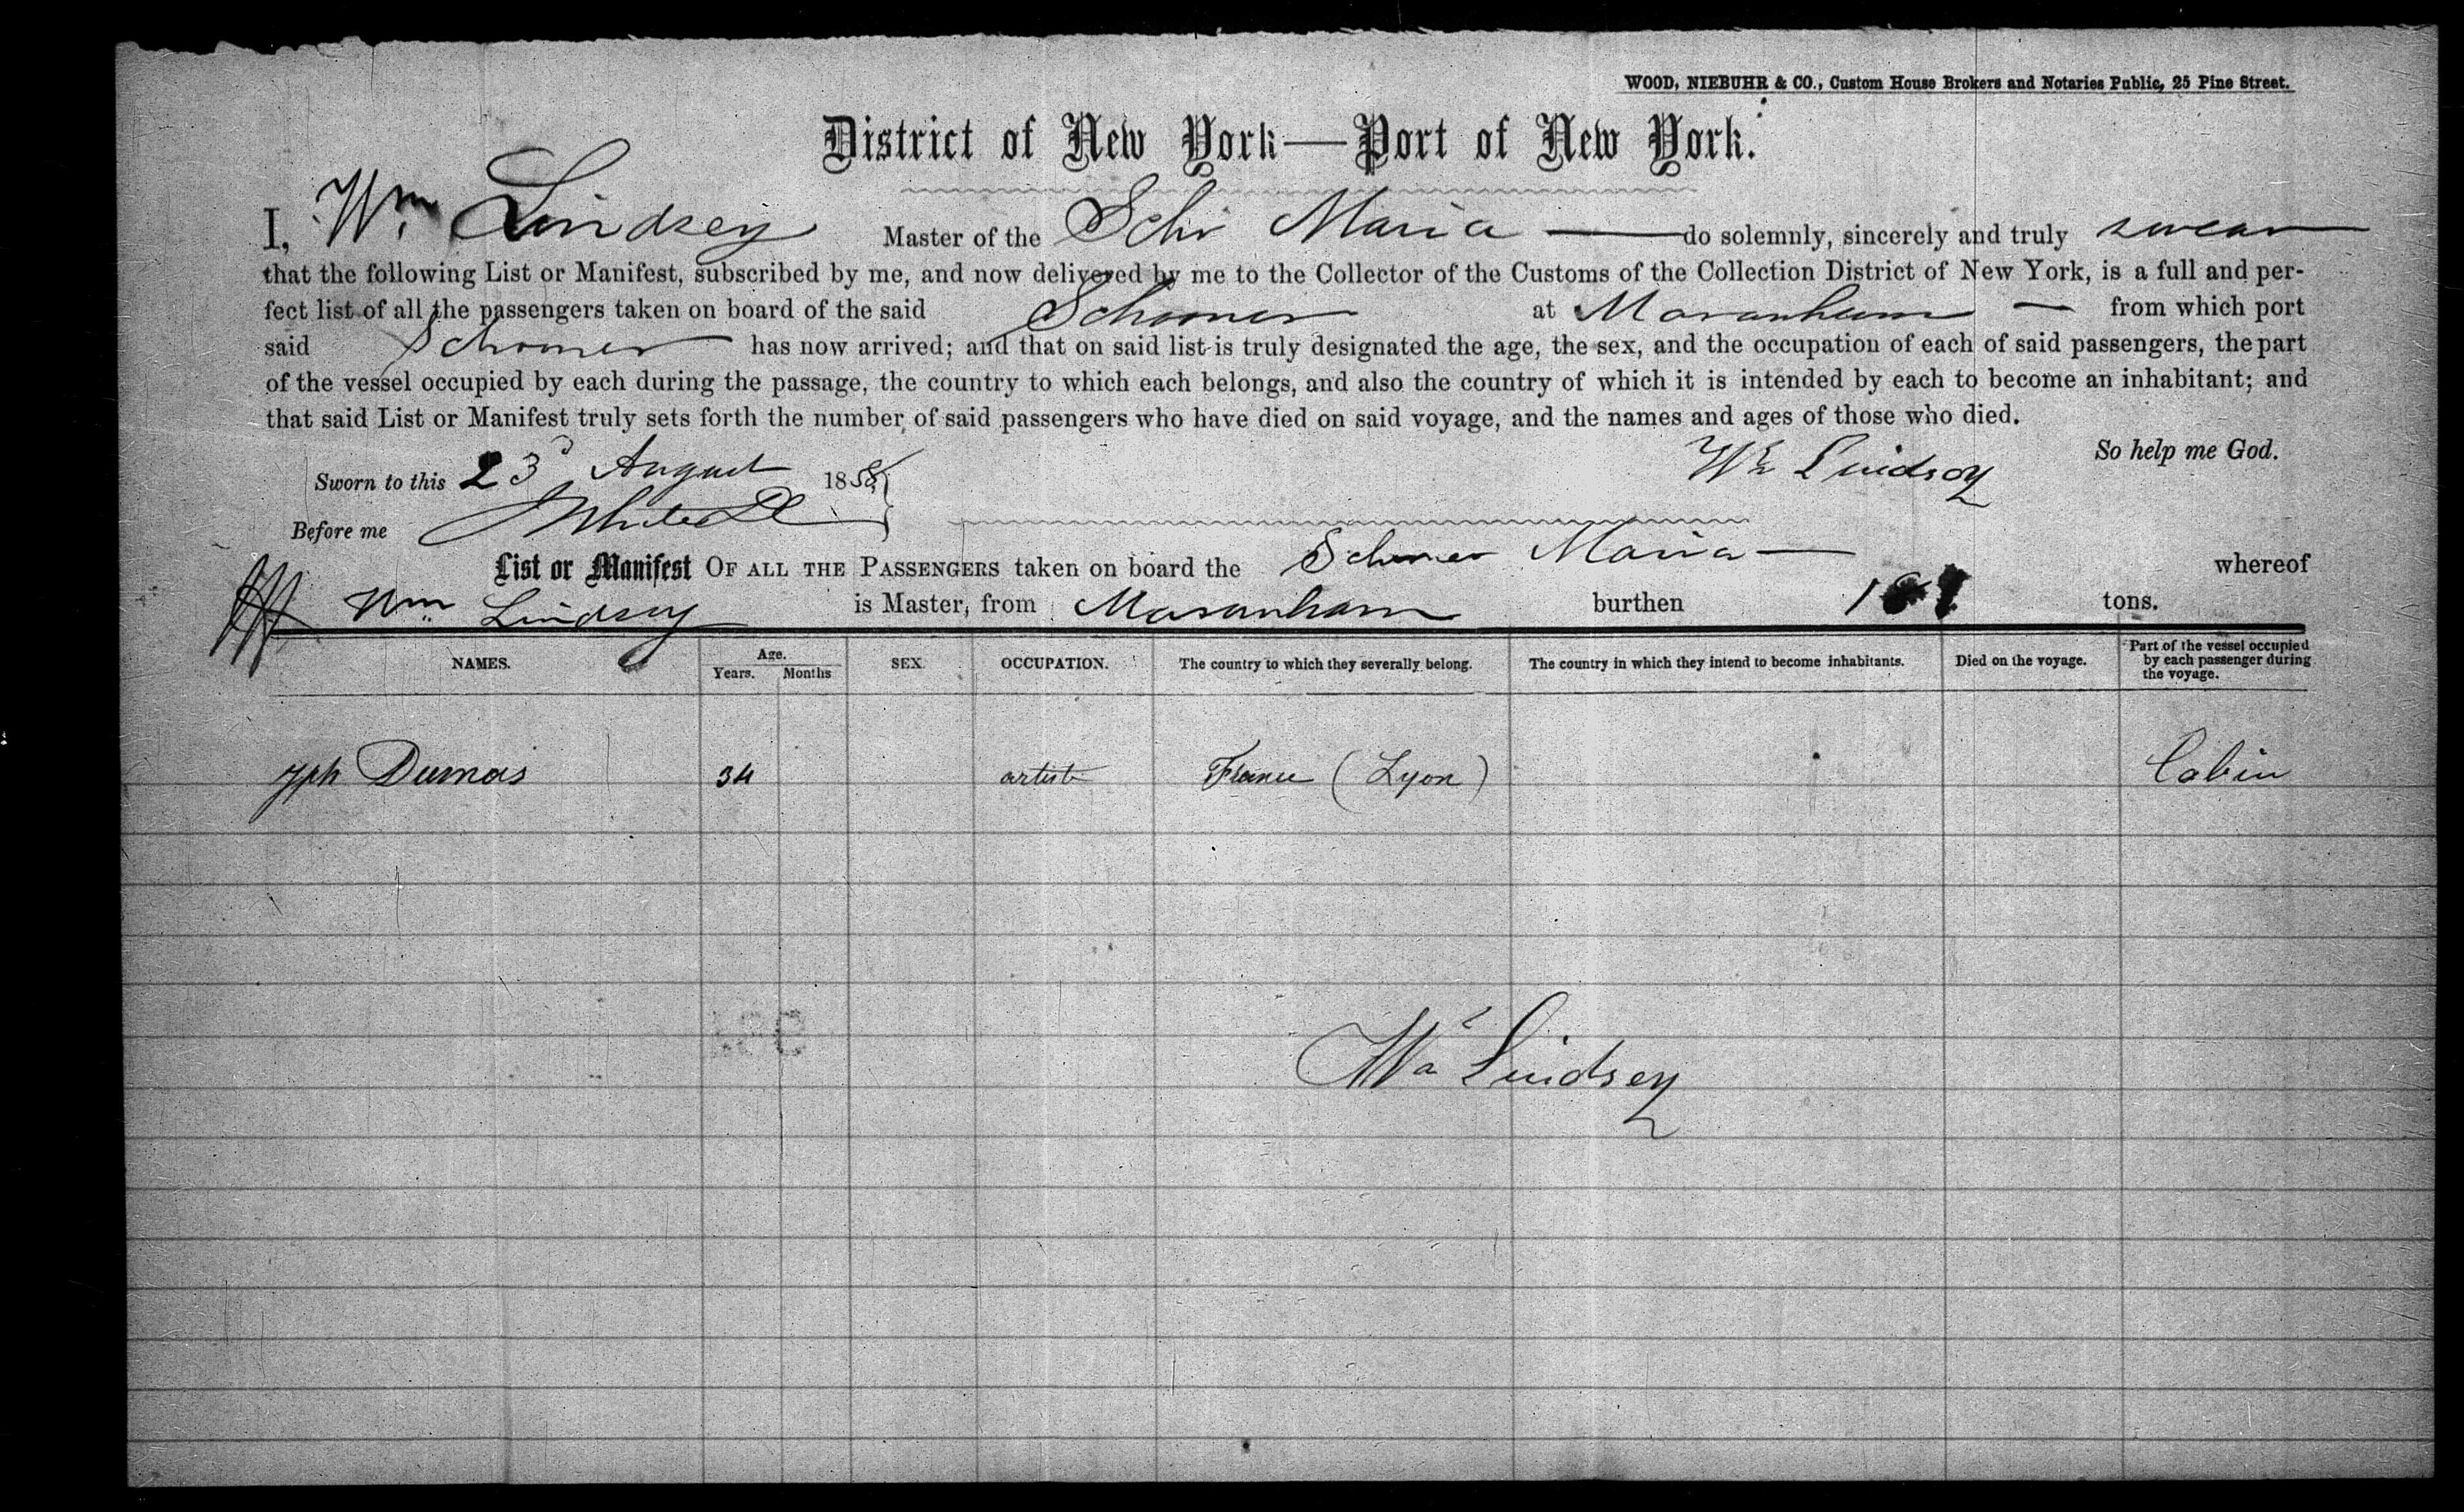 WOOD, NIEBUHR & CO., Custom House Brokers and Notaries Public, 25 Pine Street.
District of New York—Port of New York.
I, Wm. Lindsey Master of the Schr Maria — do solemnly, sincerely and truly swear
that the following List or Manifest, subscribed by me, and now delivered by me to the Collector of the Customs of the Collection District of New York, is a full and per-
fect list of all the passengers taken on board of the said Schooner at Maranham — from which port
said Schooner has now arrived; and that on said list is truly designated the age, the sex, and the occupation of each of said passengers, the part
of the vessel occupied by each during the passage, the country to which each belongs, and also the country of which it is intended by each to become an inhabitant; and
that said List or Manifest truly sets forth the number of said passengers who have died on said voyage, and the names and ages of those who died.
So help me God.
Sworn to this 23d August 1858 Wm Lindsey
Before me
List or Manifest OF ALL THE PASSENGERS taken on board the Schooner Maria — whereof
Wm Lindsey is Master, from Maranham burthen tons.
NAMES. Age. Years. Months SEX. OCCUPATION. The country to which they severally belong. The country in which they intend to become inhabitants. Died on the voyage. Part of the vessel occupied by each passenger during the voyage.
Jph Dumas 34 artist France (Lyon) Cabin
Wm Lindsey